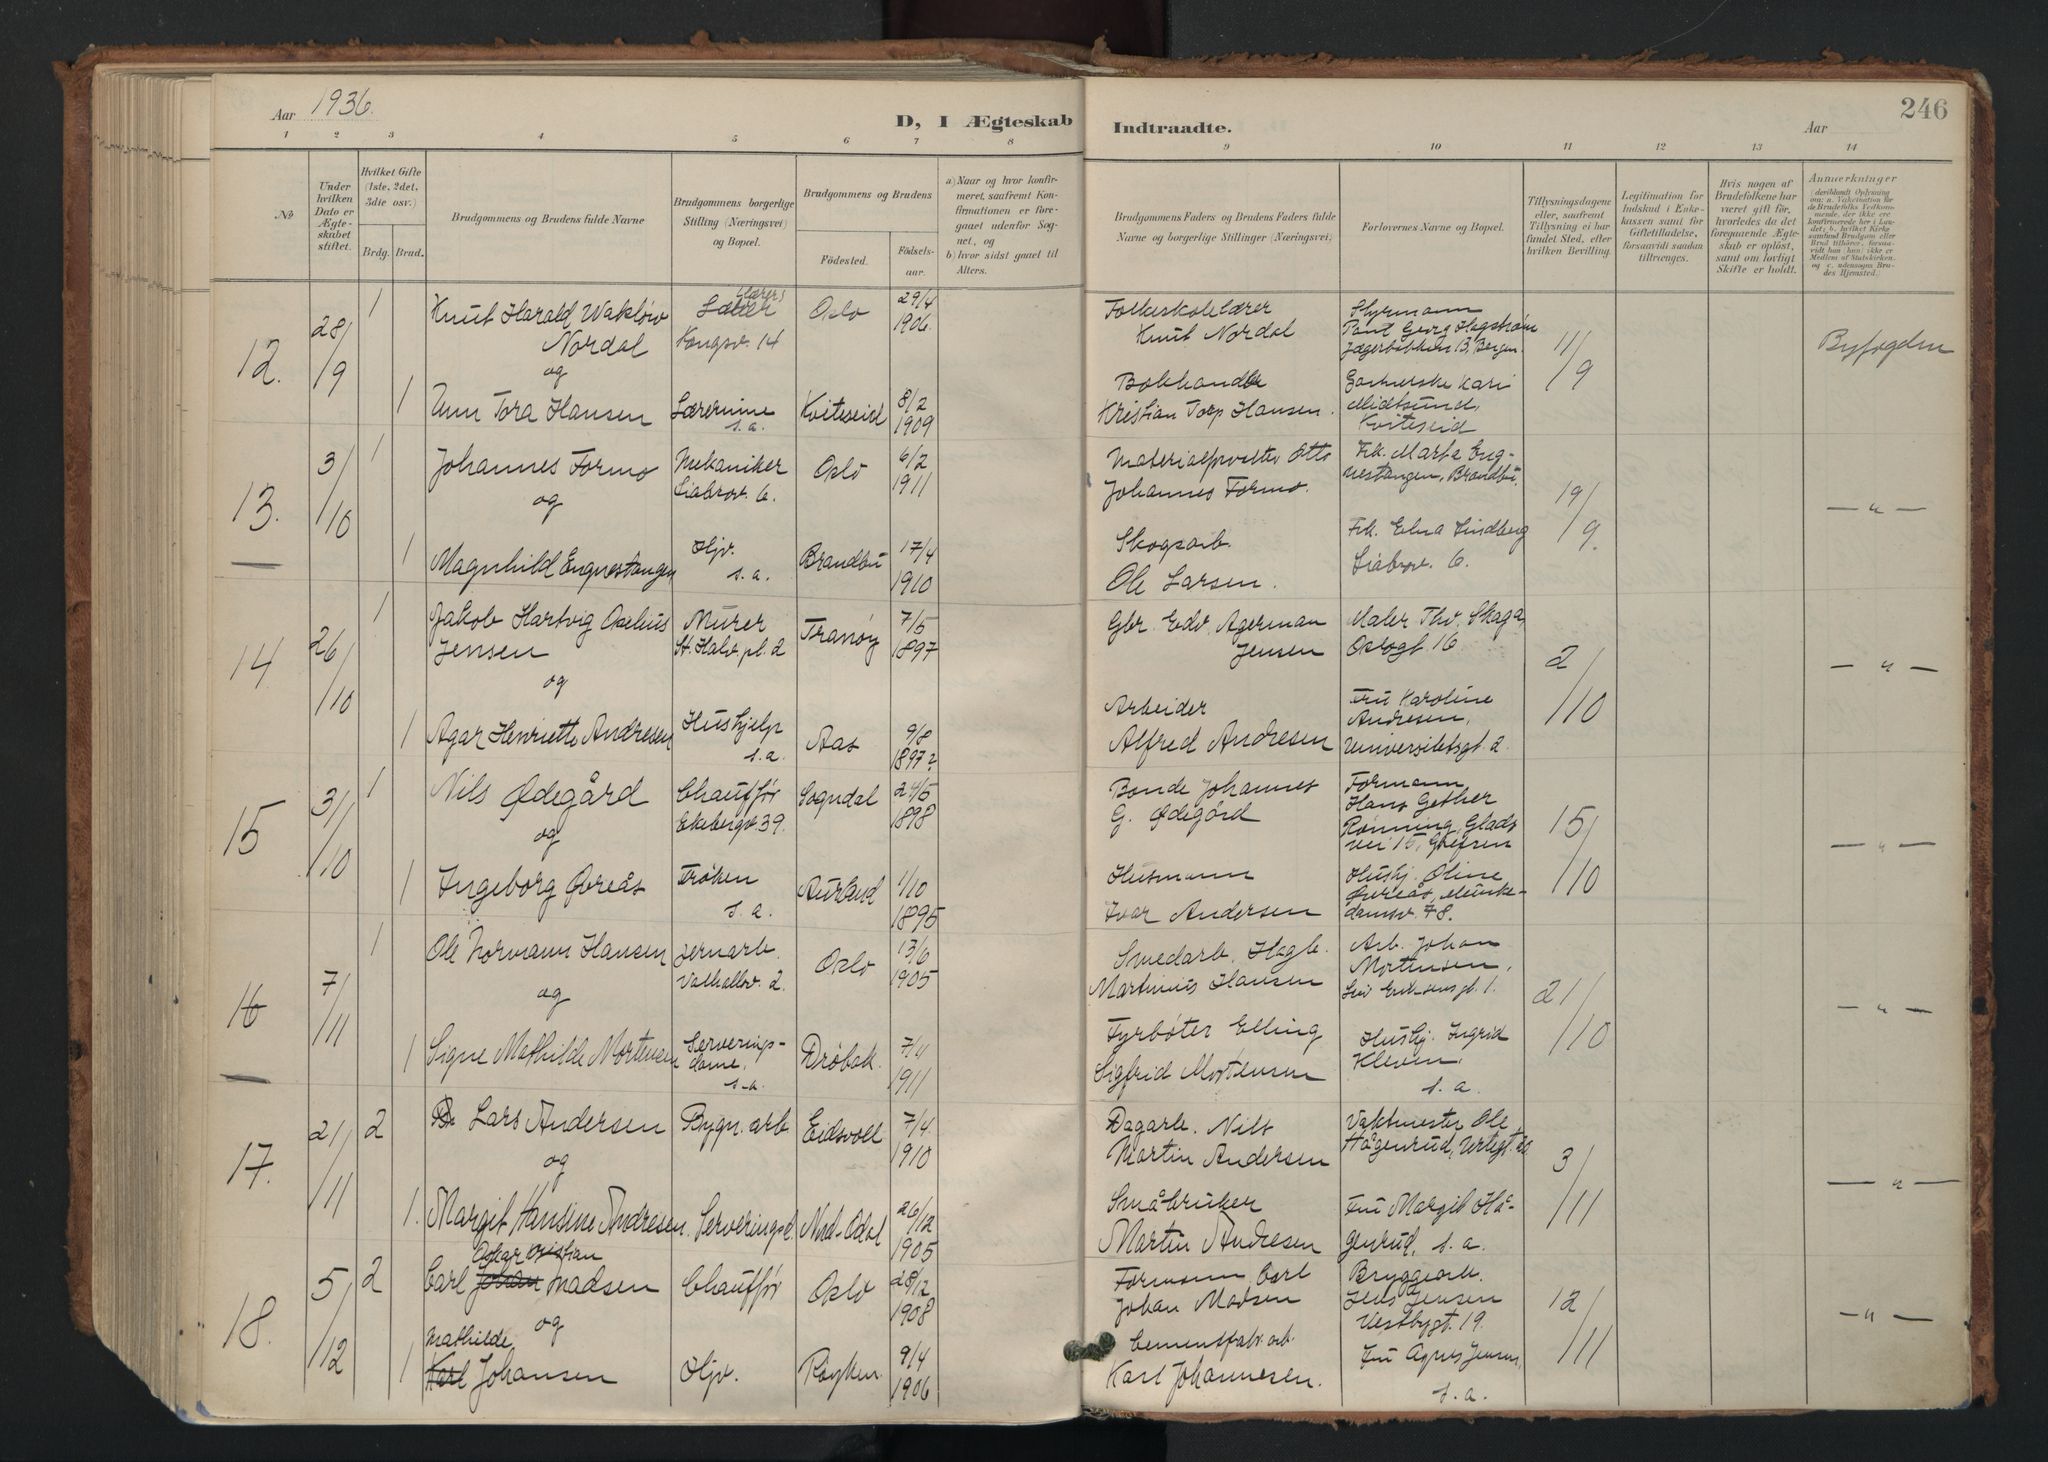 Aar 1936.
D, I Ægteskab
Indtraadte.
Aar
246
1 2 3 4 5 6 7 8
9 10 11 12 13 14
No
Under hvilken Dato er Ægteskabet stiftet.
Hvilket Gifte (1ste, 2det, 3die osv.)
Brdg. Brud.
Brudgommens og Brudens fulde Navne
Brudgommens borgerlige Stilling (Næringsvei) og Bopæl.
Brudgommens og Brudens
Fødested.
Fødselsaar.
a) Naar og hvor konfirmeret, saafremt Konfirmationen er foregaaet udenfor Sognet, og
b) hvor sidst gaaet til Alters.
Brudgommens Faders og Brudens Faders fulde Navne og borgerlige Stillinger (Næringsvei)
Forlovernes Navne og Bopæl.
Tillysningsdagene eller, saafremt Tillysning ei har fundet Sted, efter hvilken Bevilling.
Legitimation for Indskud i Enkekassen samt for Giftetilladelse, forsaavidt saadan tiltrænges.
Hvis nogen af Brudefolkene har været gift før, hvorledes da det foregaaende Ægteskab er opløst, samt om lovligt Skifte er holdt.
Anmerkninger
12. 28/9 1
Knut Harald
Nordal
og
1 Unn Tora Hansen
Kongsv. 14
Oslo 29/4 1906.
Lærerinne s.a.
Kviteseid 8/2 1909
Folkeskolelærer
Knut Nordal
Bokhandler
Kristian Torp Hansen.
Styrmann
Paul Georg Hagstrøm
Jægerbakken 13, Bergen.
Kari
Midtsund,
Kviteseid
11/9
Byfogden
13. 3/10 1
Johannes Formo
og
1 Magnhild Engnestangen
Mekaniker
Liabrov. 6.
Oslo 6/2 1911
Hjv. s.a.
Brandbu 17/4 1910
Materialforvalter Otto
Johannes Formo.
Skogsarb.
Ole Larsen.
Frk. Marta Eng-
nestangen, Brandbu.
Frk. Edna Lindberg
Liabrov. 6.
19/9.
— " —
14. 26/10 1
Jakob Hartvig Oxelius
Jensen
og
1 Agar Henriette Andresen
Murer
St. Halv. pl. 2
Tranøy 7/5 1897
Hushjelp s.a.
Aas 9/8 1897?
Gbr. Edv. Agerman
Jensen
Arbeider
Alfred Andresen
Maler Thv. Skaga,
Oslogt 16
Fru Karoline
Andresen,
Universitetsgt. 2.
2/10
— " —
15 31/10 1
Nils Ødegård
og
1 Ingeborg Øvreås
Chauffør
Ekebergv. 39.
Sogndal 24/5 1898
Frøken s.a.
Aurland 1/10 1895
Bonde Johannes
G. Ødegård
Husmann
Ivar Andersen
Formann
Hans Gether
Rønning, Glads
vei 15, Grefsen
Hushj. Oline
Øvreås, Munke-
damsv. 78.
15/10
— " —
16 7/11 1
Ole Normann Hansen
og
1 Signe Mathilde Mortensen
Jernarb.
Valhallav. 2.
Oslo 13/6 1905
Serverings-
dame, s.a.
Drøbak. 7/4 1911
Smedarb. Hagb.
Martinius Hansen
Fyrbøter Elling
Sigfrid Mortensen
Arb. Johan
Mortensen,
Hushj. Ingrid
Kleven,
s.a.
21/10
— " —
17. 21/11 2
Lars Andersen
og
1. Margit Hansine Andresen.
Bygn. arb
Eidsvoll 7/4 1910
Serveringsd.
Nord-Odal 26/12 1905
Dagarb. Nils
Martin Andersen
Småbruker
Martin Andresen
Vaktmester Ole
Hågenrud, Vertsgt. 20
Fru Margit Hå-
genrud, s.a.
3/11
— " —
18. 5/12 2
Oskar Kristian
Carl Johan Madsen
og
Mathilde
1 Karl Johansen
Chauffør
Oslo 28/12 1908
Hjv.
Røyken 9/4 1906
Formann Carl
Johan Madsen
Cementstøb. arb.
Karl Johannesen.
Bryggearb.
Jens Jensen
Vestbygt. 19.
Fru Agnes Jensen,
s.a.
12/11
— " —